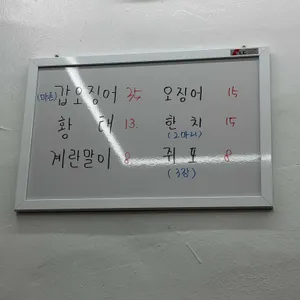 갑오징어 25 오징어 15
황태 13. 한치 15
(2마리)
계란말이 8 쥐포 8
(3장)